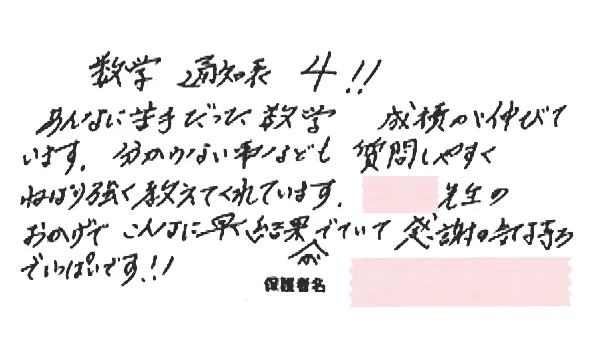 数学 通知表 4!!
あんなに苦手だった数学 成積が伸びて
います。分からない事なども 質問しやすく
ねばり強く教えてくれています。 先生の
おかげで こんなに早く結果がでていて 感謝の気持ち
でいっぱいです!!
保護者名